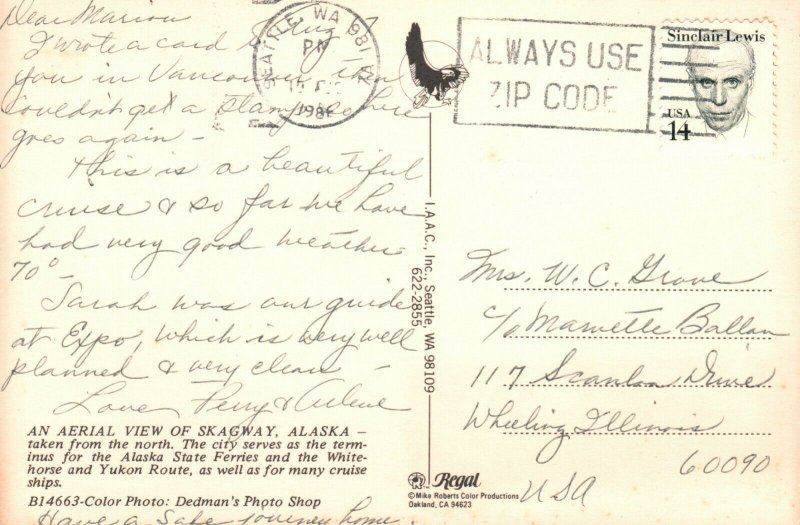 Dear Marion
I wrote a card to
you in Vancouver, then
couldn't get a stamp so here
goes again –
This is a beautiful
cruise & so far we have
had very good weather
70° –
Sarah was our guide
at Expo, which is very well
planned & very clean –
Love, Perry & Arlene
AN AERIAL VIEW OF SKAGWAY, ALASKA –
taken from the north. The city serves as the term-
inus for the Alaska State Ferries and the White-
horse and Yukon Route, as well as for many cruise
ships.
B14663-Color Photo: Dedman's Photo Shop
Have a safe journey home.
SEATTLE, WA 981
PM
1986
ALWAYS USE
ZIP CODE
Sinclair Lewis
USA
14
I.A.A.C., Inc., Seattle, WA 98109
622-2855
Mrs. W. C. Grove
c/o Marvette Ballan
117 Scanlon Drive
Wheeling Illinois
60090
USA
Regal
©Mike Roberts Color Productions
Oakland, CA 94623